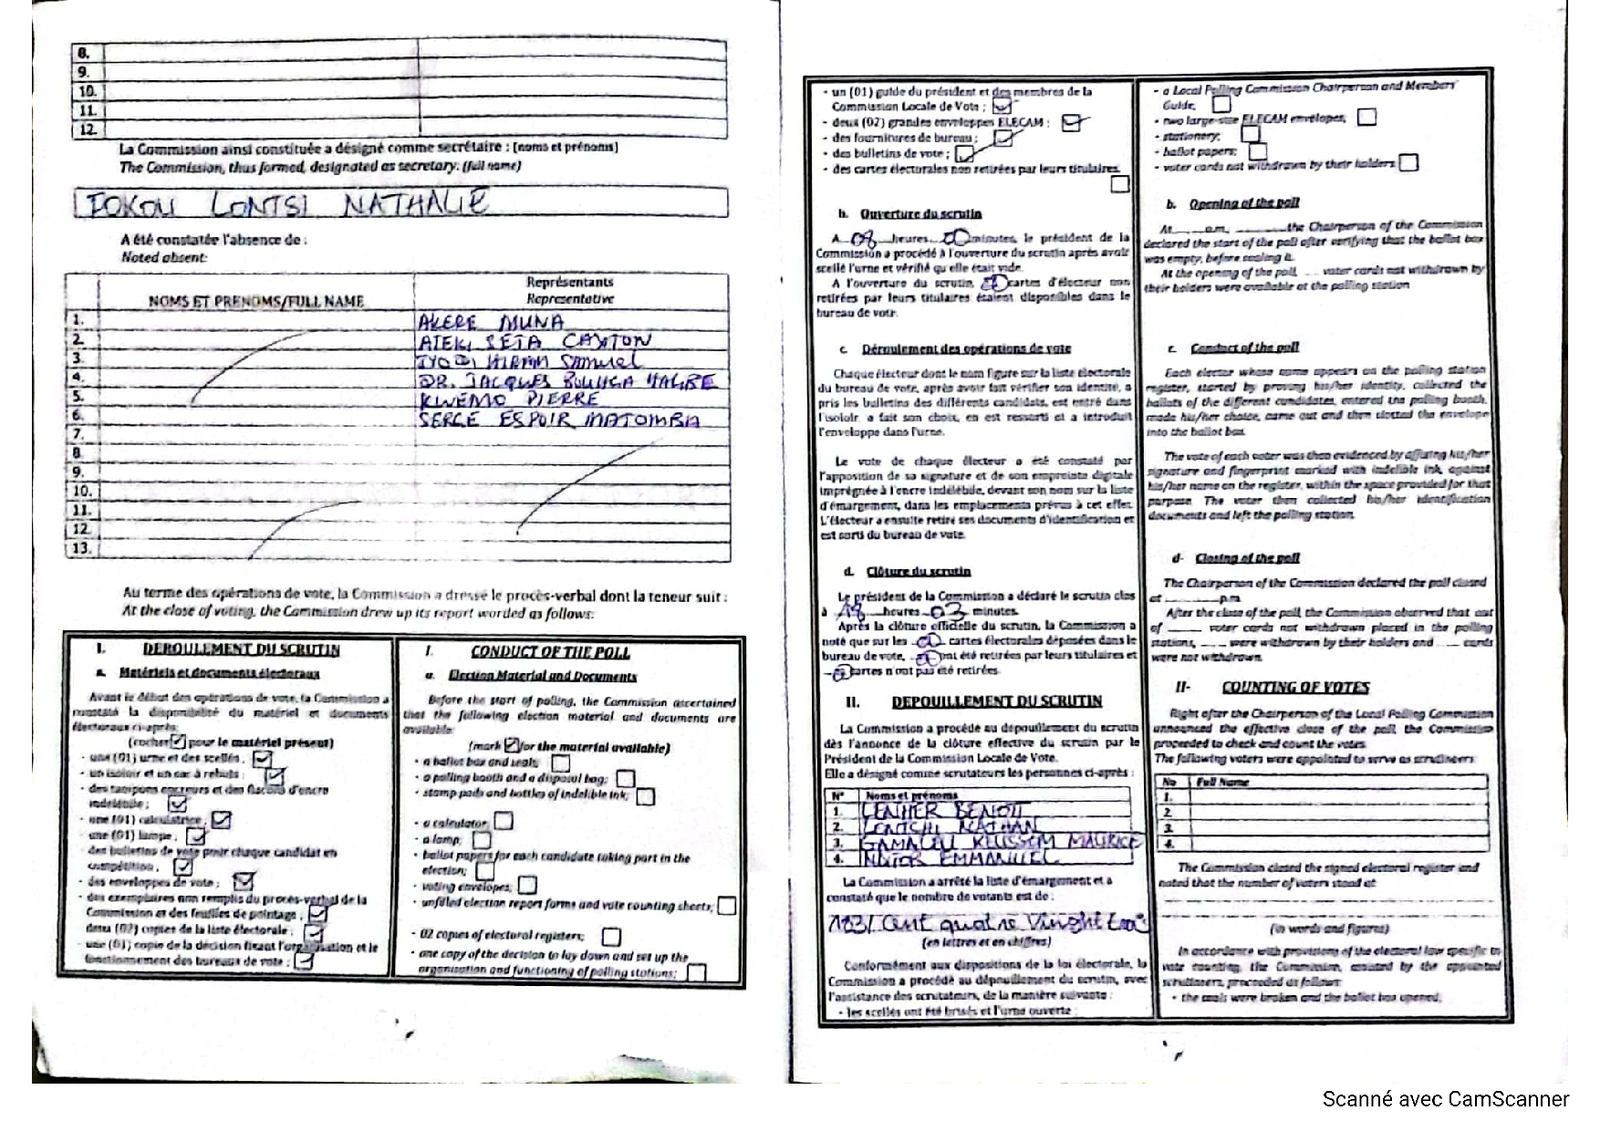 8.
9.
10.
11.
12.
La Commission ainsi constituée a désigné comme secrétaire : (noms et prénoms)
The Commission, thus formed, designated as secretary: (full name)
LONTSI NATHALIE
A été constatée l'absence de :
Noted absent:
NOMS ET PRENOMS/FULL NAME
Représentants
Representative
1. AKERE MUNA
2. ATEKI SETA CAXTON
3. IYODI HIRAM SAMUEL
4. DR. JACQUES BOUHGA HAGBE
5. KWEMO PIERRE
6. SERGE ESPOIR MATOMBA
7.
8.
9.
10.
11.
12.
13.
Au terme des opérations de vote, la Commission a dressé le procès-verbal dont la teneur suit :
At the close of voting, the Commission drew up its report worded as follows:
I. DEROULEMENT DU SCRUTIN
a. Matériels et documents électoraux
Avant le début des opérations de vote, la Commission a
constaté la disponibilité du matériel et documents
électoraux ci-après:
(cocher pour le matériel présent)
- une (01) urne et des scellés ;
- un isoloir et un sac à rebuts ;
- des tampons encreurs et des flacons d'encre
indélébile ;
- une (01) calculatrice ;
- une (01) lampe ;
- des bulletins de vote pour chaque candidat en
compétition ;
- des enveloppes de vote ;
- des exemplaires non remplis du procès-verbal de la
Commission et des feuilles de pointage ;
- deux (02) copies de la liste électorale ;
- une (01) copie de la décision fixant l'organisation et le
fonctionnement des bureaux de vote ;
I. CONDUCT OF THE POLL
a. Election Material and Documents
Before the start of polling, the Commission ascertained
that the following election material and documents are
available:
(mark for the material available)
- a ballot box and seals;
- a polling booth and a disposal bag;
- stamp pads and bottles of indelible ink;
- a calculator;
- a lamp;
- ballot papers for each candidate taking part in the
election;
- voting envelopes;
- unfilled election report forms and vote counting sheets;
- 02 copies of electoral registers;
- one copy of the decision to lay down and set up the
organisation and functioning of polling stations;
- un (01) guide du président et des membres de la
Commission Locale de Vote ;
- deux (02) grandes enveloppes ELECAM ;
- des fournitures de bureau ;
- des bulletins de vote ;
- des cartes électorales non retirées par leurs titulaires.
b. Ouverture du scrutin
A 08 heures 00 minutes, le président de la
Commission a procédé à l'ouverture du scrutin après avoir
scellé l'urne et vérifié qu'elle était vide.
A l'ouverture du scrutin, cartes d'électeur non
retirées par leurs titulaires étaient disponibles dans le
bureau de vote.
c. Déroulement des opérations de vote
Chaque électeur dont le nom figure sur la liste électorale
du bureau de vote, après avoir fait vérifier son identité, a
pris les bulletins des différents candidats, est entré dans
l'isoloir, a fait son choix, en est ressorti et a introduit
l'enveloppe dans l'urne.
Le vote de chaque électeur a été constaté par
l'apposition de sa signature et de son empreinte digitale
imprégnée à l'encre indélébile, devant son nom sur la liste
d'émargement, dans les emplacements prévus à cet effet.
L'électeur a ensuite retiré ses documents d'identification et
est sorti du bureau de vote.
d. Clôture du scrutin
Le président de la Commission a déclaré le scrutin clos
à 18 heures 03 minutes.
Après la clôture officielle du scrutin, la Commission a
noté que sur les 00 cartes électorales déposées dans le
bureau de vote, ont été retirées par leurs titulaires et
cartes n'ont pas été retirées.
II. DEPOUILLEMENT DU SCRUTIN
La Commission a procédé au dépouillement du scrutin
dès l'annonce de la clôture effective du scrutin par le
Président de la Commission Locale de Vote.
Elle a désigné comme scrutateurs les personnes ci-après :
N° Noms et prénoms
1. BENOIT
2. LONTSHI NATHAN
3. MAURICE
4. EMMANUEL
La Commission a arrêté la liste d'émargement et a
constaté que le nombre de votants est de :
183/ Cent quatre Vinght trois
(en lettres et en chiffres)
Conformément aux dispositions de la loi électorale, la
Commission a procédé au dépouillement du scrutin, avec
l'assistance des scrutateurs, de la manière suivante :
- les scellés ont été brisés et l'urne ouverte ;
- a Local Polling Commission Chairperson and Members'
Guide;
- two large-size ELECAM envelopes;
- stationery;
- ballot papers;
- voter cards not withdrawn by their holders
b. Opening of the poll
At a.m, the Chairperson of the Commission
declared the start of the poll after verifying that the ballot box
was empty, before sealing it.
At the opening of the poll, voter cards not withdrawn by
their holders were available at the polling station
c. Conduct of the poll
Each elector whose name appears on the polling station
register, started by proving his/her identity, collected the
ballots of the different candidates, entered the polling booth,
made his/her choice, came out and then slotted the envelope
into the ballot box.
The vote of each voter was then evidenced by affixing his/her
signature and fingerprint marked with indelible ink, against
his/her name on the register, within the space provided for that
purpose. The voter then collected his/her identification
documents and left the polling station.
d- Closing of the poll
The Chairperson of the Commission declared the poll closed
at p.m.
After the close of the poll, the Commission observed that out
of voter cards not withdrawn placed in the polling
stations, were withdrawn by their holders and cards
were not withdrawn.
II- COUNTING OF VOTES
Right after the Chairperson of the Local Polling Commission
announced the effective close of the poll, the Commission
proceeded to check and count the votes.
The following voters were appointed to serve as scrutineers:
No Full Name
1.
2.
3.
4.
The Commission closed the signed electoral register and
noted that the number of voters stood at
(in words and figures)
In accordance with provisions of the electoral law specific to
vote counting, the Commission, assisted by the appointed
scrutineers, proceeded as follows:
- the seals were broken and the ballot box opened;
Scanné avec CamScanner